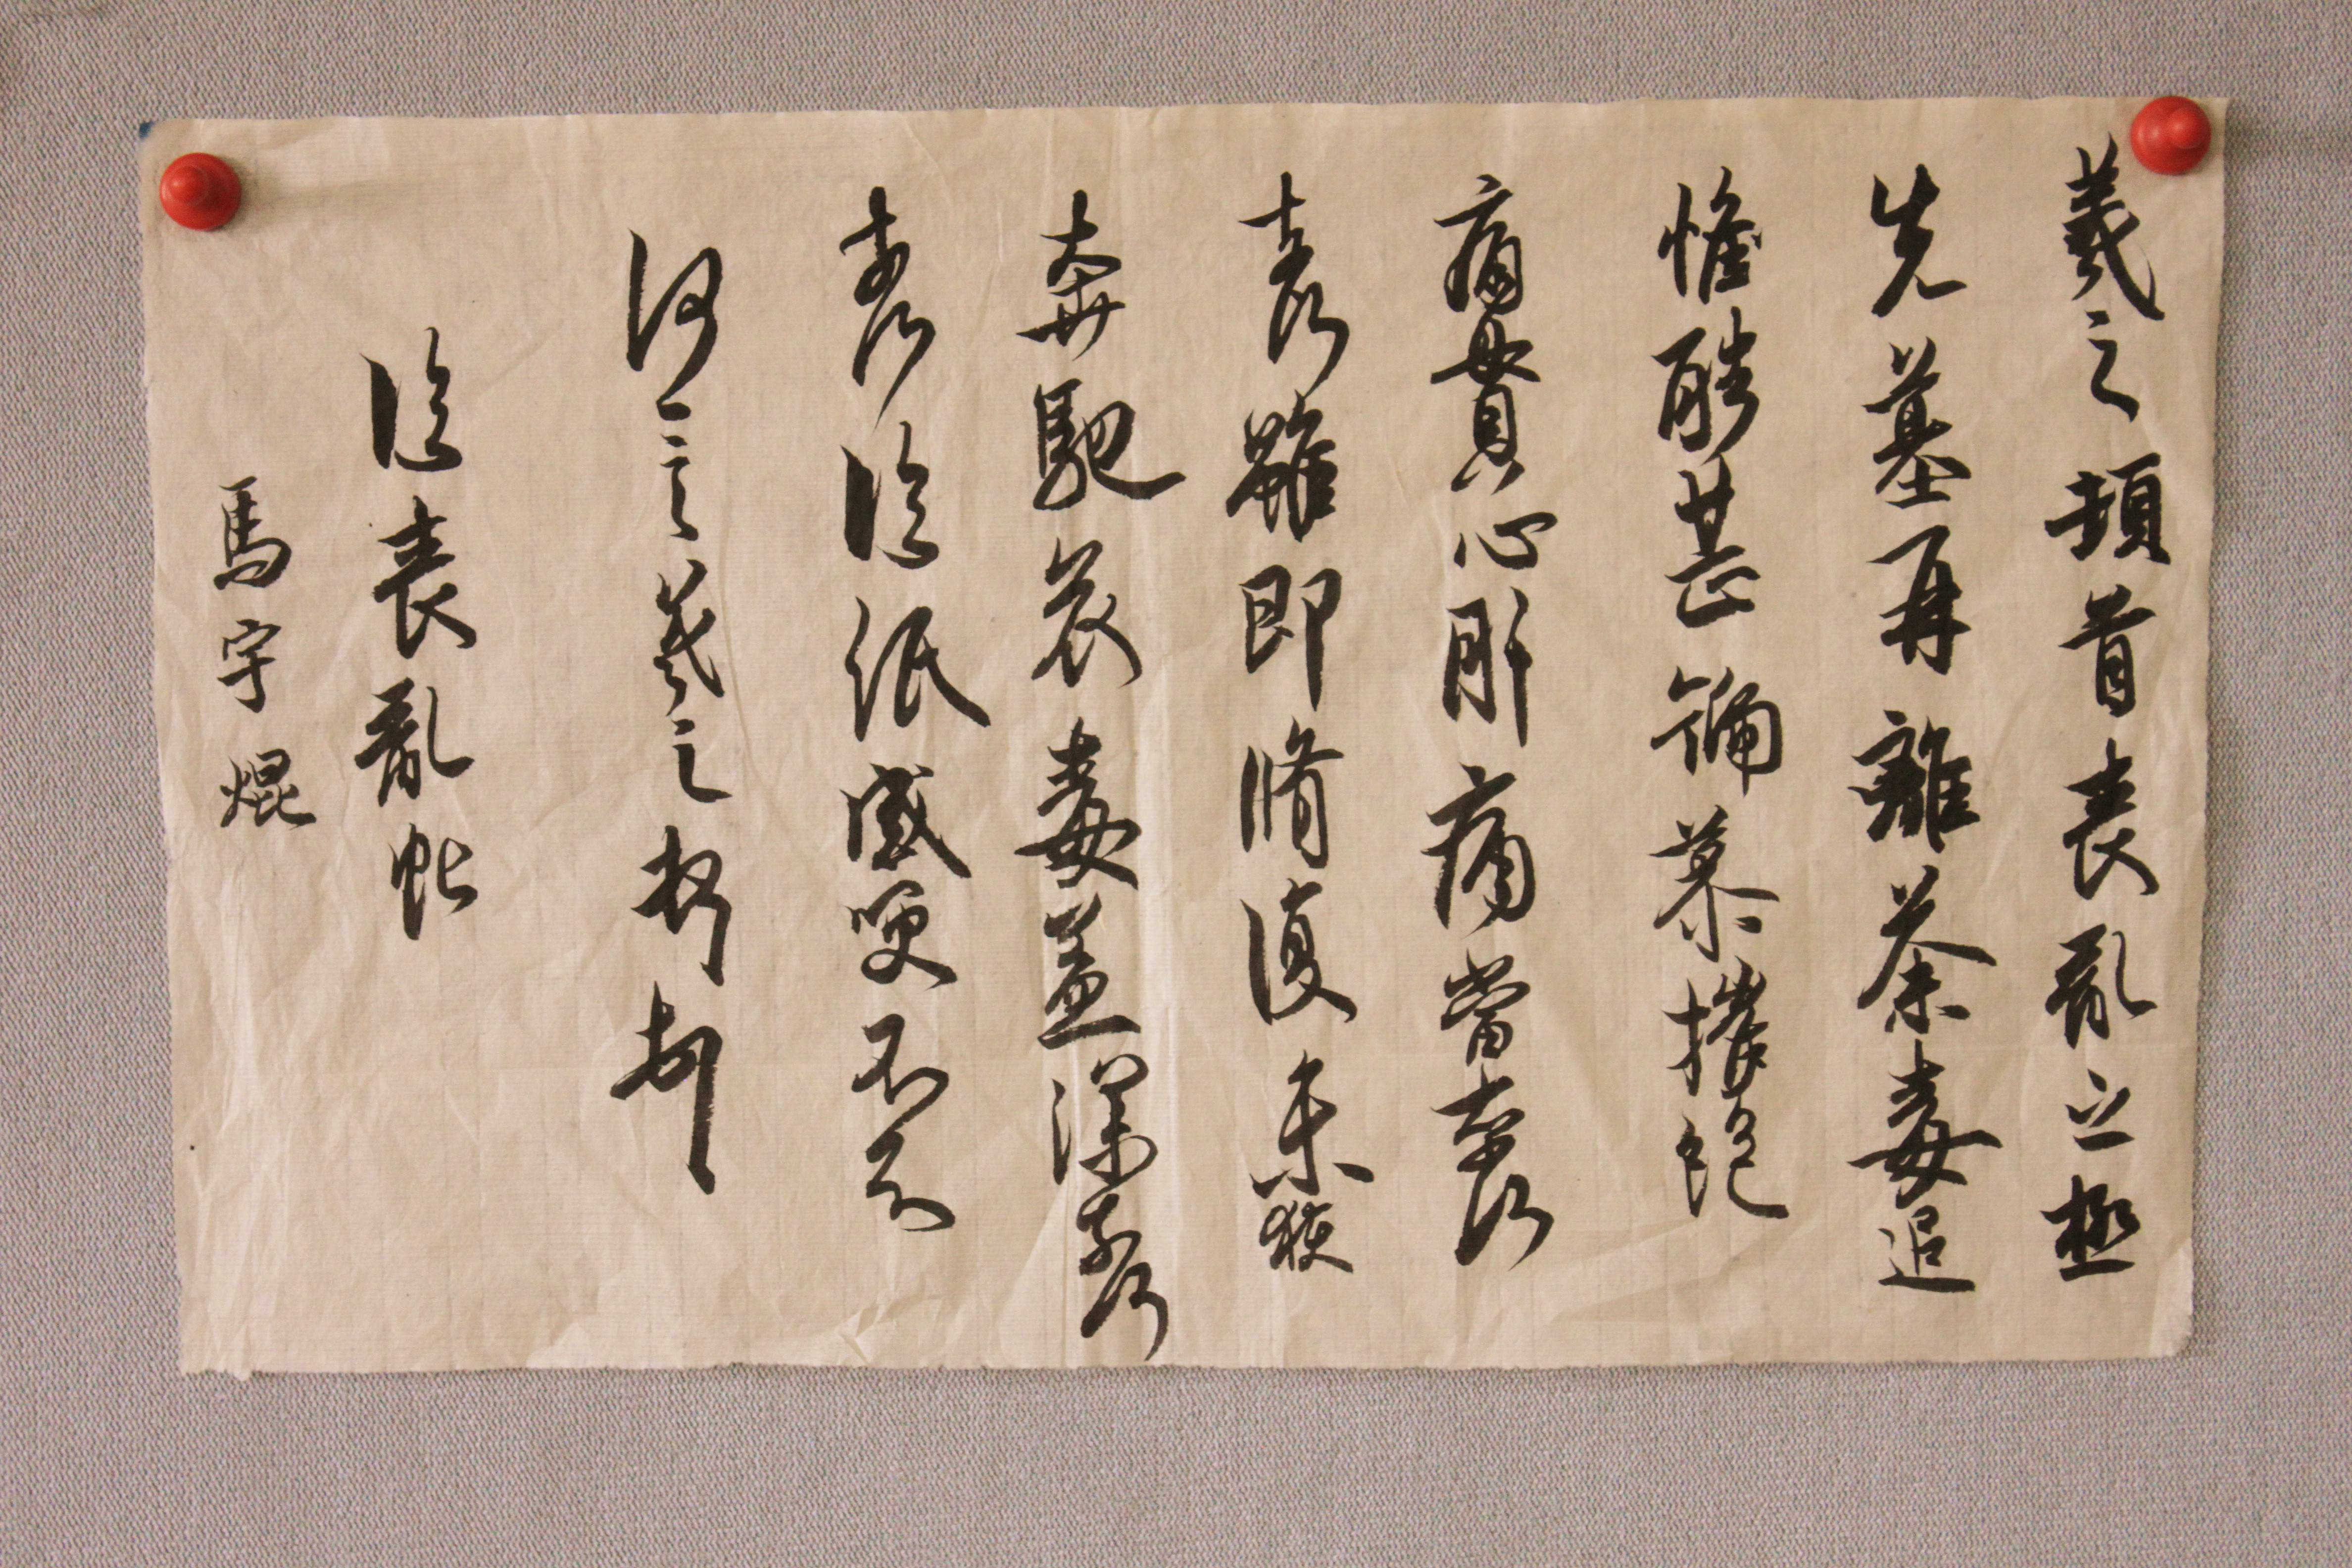 羲之頓首喪亂之極
先墓再離荼毒追
惟酷甚號慕摧絕
痛貫心肝痛當奈何
奈何雖即脩復未獲
奔馳哀毒益深奈何
奈何臨紙感哽不知
何言羲之頓首頓首
臨喪亂帖
馬宇焜